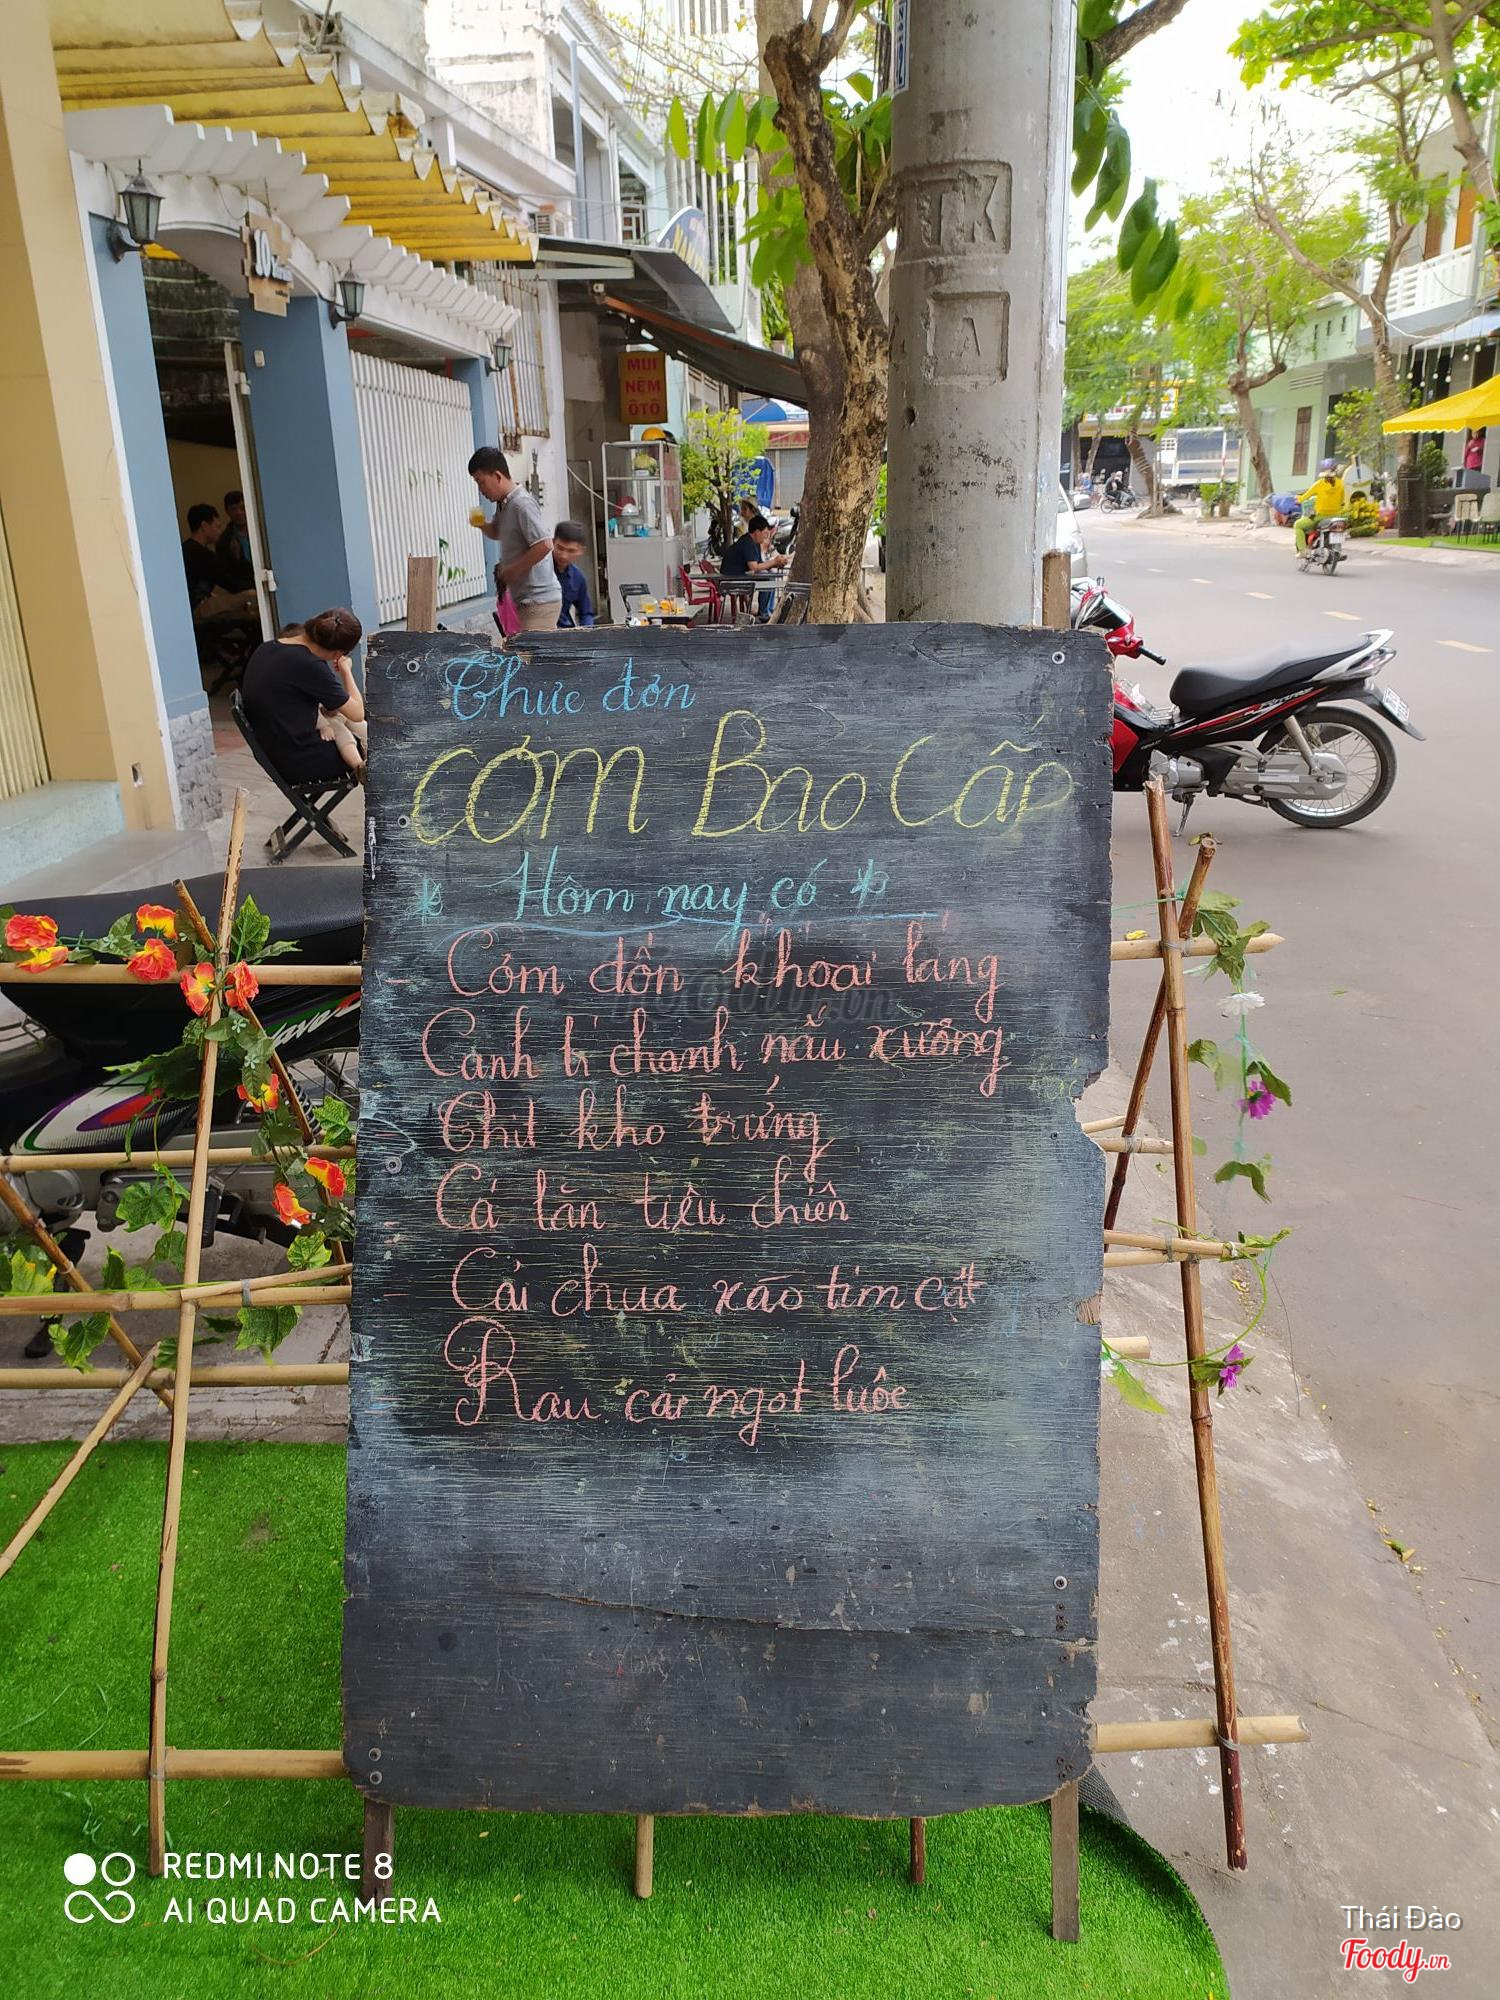 Thực đơn
Cơm Bao Cấp
* Hôm nay có *
- Cơm độn khoai lang
Canh bí chanh nấu xương
Thịt kho trứng
- Cá lăn tiêu chiên
- Cải chua xào tim cật
- Rau cải ngọt luộc
MUI
NỆM
ÔTÔ
TK
A
REDMI NOTE 8
AI QUAD CAMERA
Thái Đào
Foody.vn